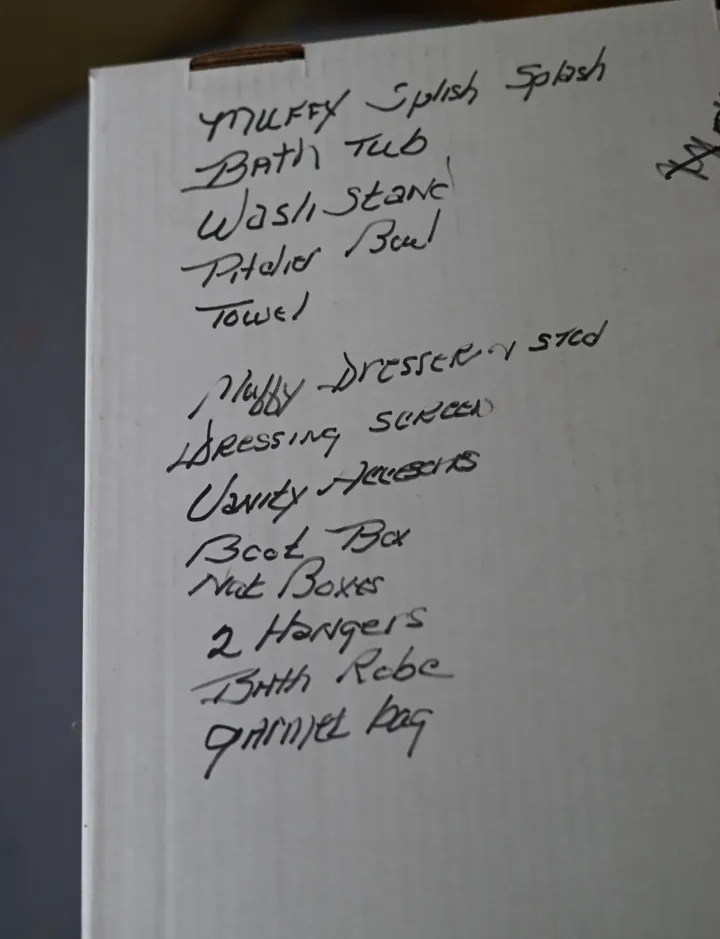 MUFFY Splish Splash
BATH TUB
Wash Stand
Pitcher Bowl
Towel
Muffy DRESSER
DRESSING SCREEN
Vanity
Boot Box
Hat Boxes
2 Hangers
BATH Robe
garmet bag